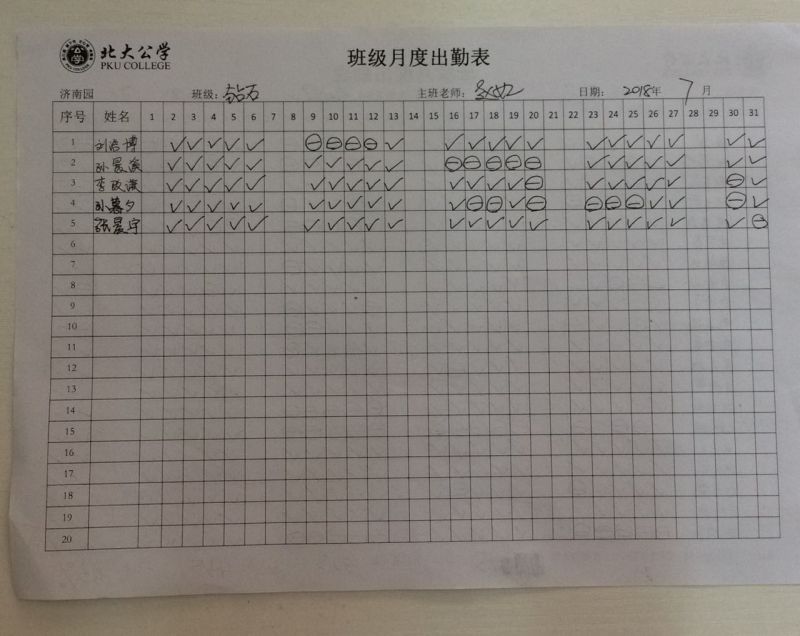 北大公学
PKU COLLEGE
班级月度出勤表
济南园 班级：钻石 主班老师： 日期： 2018年 7月
序号 姓名 1 2 3 4 5 6 7 8 9 10 11 12 13 14 15 16 17 18 19 20 21 22 23 24 25 26 27 28 29 30 31
1 刘浩博 ✓ ✓ ✓ ✓ ✓ ⊖ ⊖ ⊖ ⊖ ✓ ✓ ✓ ✓ ✓ ✓ ✓ ✓ ✓ ✓ ✓ ✓ ✓
2 孙晨溪 ✓ ✓ ✓ ✓ ✓ ✓ ✓ ✓ ✓ ✓ ⊖ ⊖ ⊖ ⊖ ⊖ ✓ ✓ ✓ ✓ ✓ ✓ ✓
3 李政 ✓ ✓ ✓ ✓ ✓ ✓ ✓ ✓ ✓ ✓ ✓ ✓ ✓ ✓ ⊖ ✓ ✓ ✓ ✓ ✓ ⊖ ✓
4 孙慕夕 ✓ ✓ ✓ ✓ ✓ ✓ ✓ ✓ ✓ ✓ ✓ ⊖ ⊖ ✓ ⊖ ⊖ ⊖ ⊖ ✓ ✓ ⊖ ✓
5 张晨宇 ✓ ✓ ✓ ✓ ✓ ✓ ✓ ✓ ✓ ✓ ✓ ✓ ✓ ✓ ✓ ✓ ✓ ✓ ✓ ✓ ✓ ⊖
6
7
8
9
10
11
12
13
14
15
16
17
18
19
20